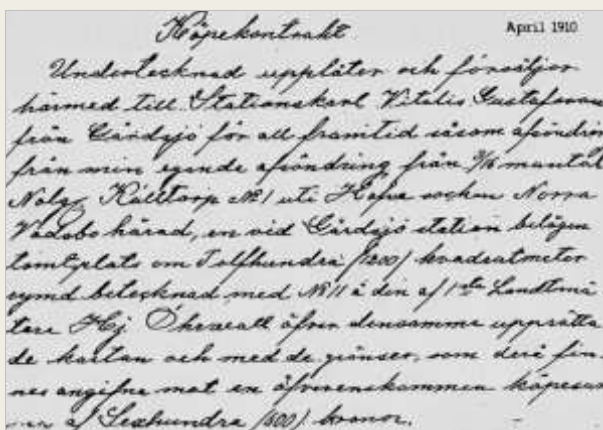 Köpekontrakt
April 1910
Undertecknad upplåter och försäljer
härmed till Stationskarl Vitalis Gustafsson
från Gårdsjö för all framtid såsom afsöndring
från min egende afsöndring från mantal
Källtorp № 1 uti Hofva socken Norra
Vadsbo härad, en vid Gårdsjö station belägen
tomtplats om Tolfhundra /1200/ kvadratmeter
rymd betecknad med № 11 å den af 1ste Landtmä
tare Hj öfver densamma upprätta
de kartan och med de gränser, som derå fin-
nes angifna mot en öfverenskommen köpesum
ma af Sexhundra /600/ kronor.